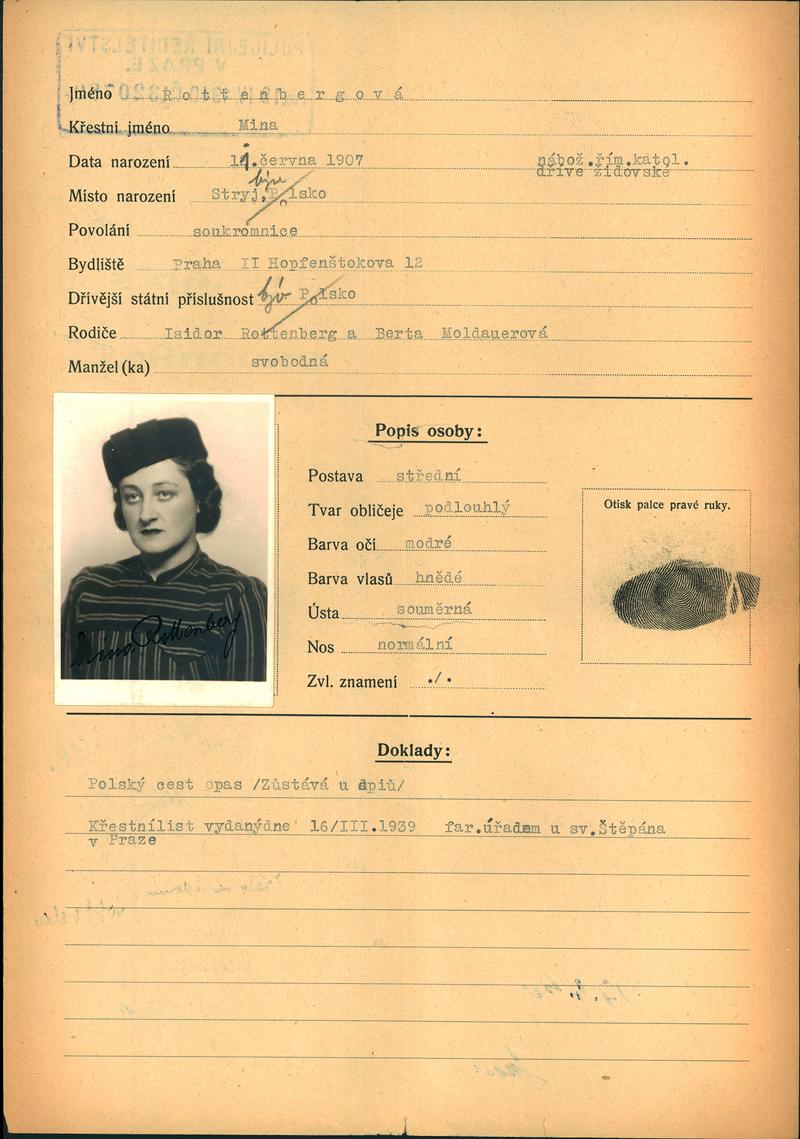 POLICEJNÍ ŘEDITELSTVÍ
V PRAZE.
Jméno Rottenbergová
Křestní jméno Mina
Data narození 11.června 1907 nábož.řím.katol.
dříve židovské
býv.
Místo narození Stryj, Polsko
Povolání soukromnice
Bydliště Praha II Hopfenštokova 12
Dřívější státní příslušnost býv. Polsko
Rodiče Isidor Rottenberg a Berta Moldauerová
Manžel(ka) svobodná
Popis osoby:
Postava střední
Tvar obličeje podlouhlý
Barva očí modré
Barva vlasů hnědé
Ústa souměrná
Nos normální
Zvl. znamení ./.
Otisk palce pravé ruky.
Mina Rottenberg
Doklady:
Polský cest opas /Zůstává u dpiů/
Křestnílist vydanýdne 16/III.1939 far.úřadem u sv.Štěpána
v Praze